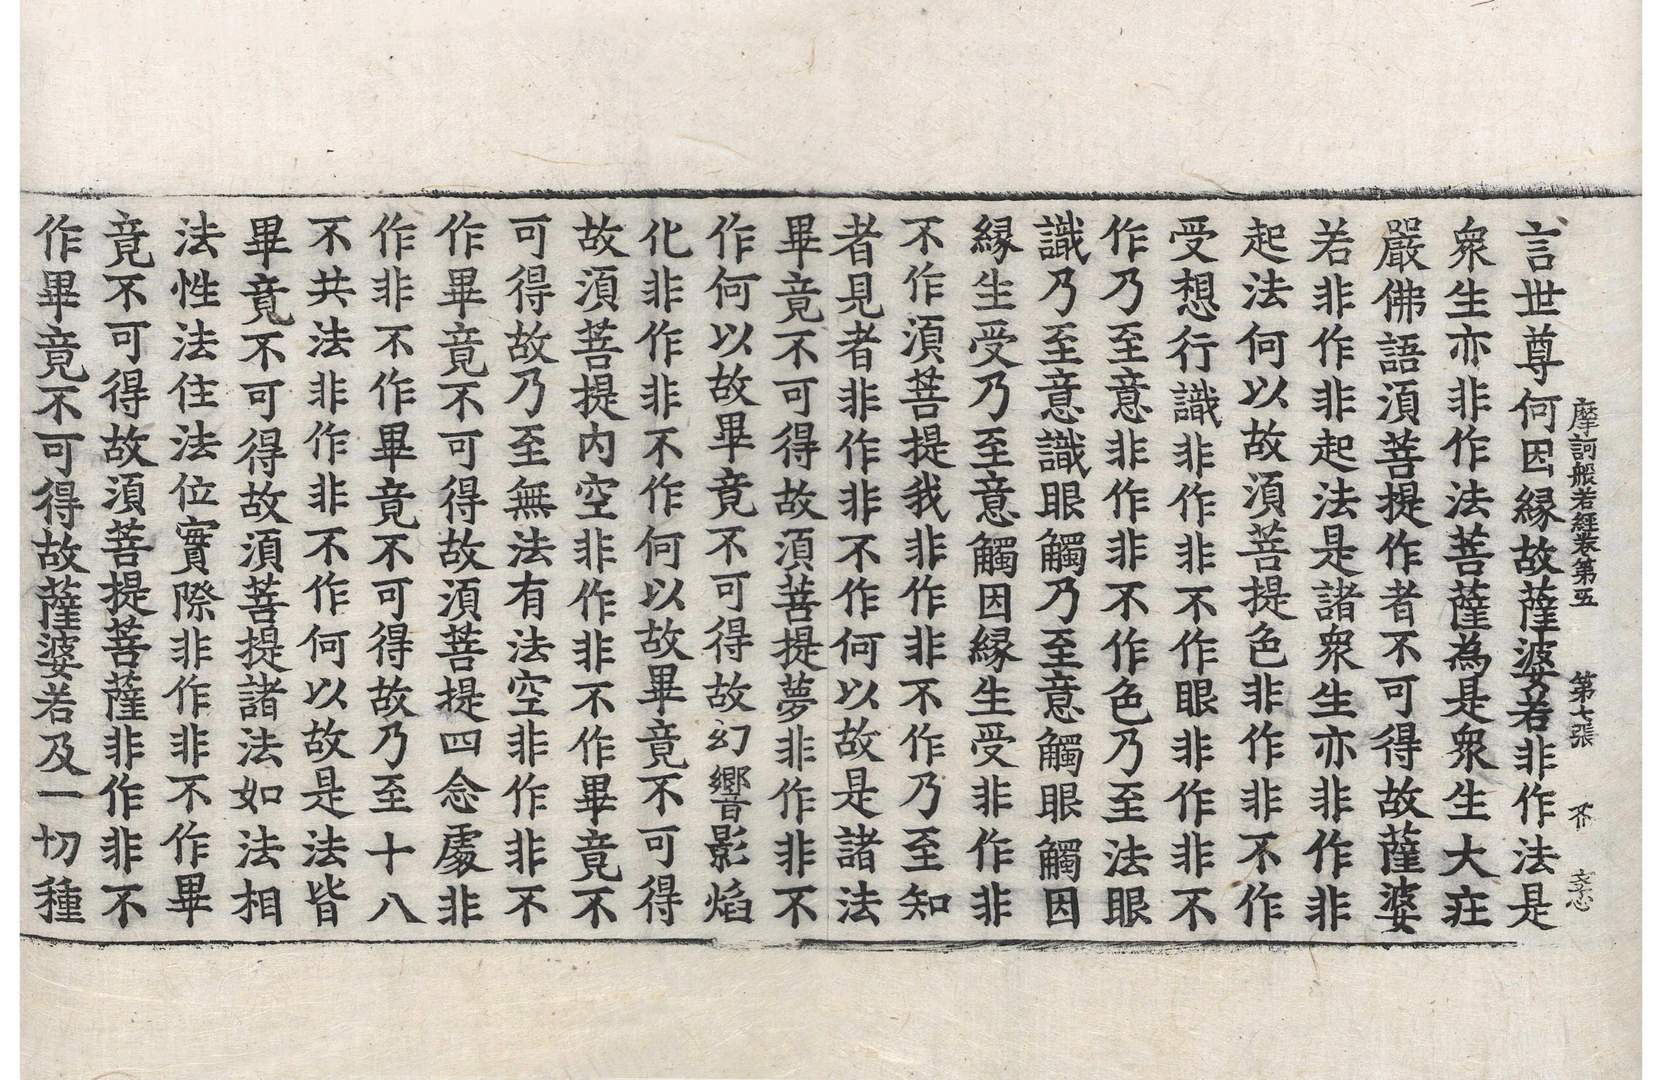 摩訶般若經卷第五　第七張　芥　文忠
言世尊何因縁故薩婆若非作法是
衆生亦非作法菩薩為是衆生大荘
嚴佛語湏菩提作者不可得故薩婆
若非作非起法是諸衆生亦非作非
起法何以故湏菩提色非作非不作
受想行識非作非不作眼非作非不
作乃至意非作非不作色乃至法眼
識乃至意識眼觸乃至意觸眼觸因
縁生受乃至意觸因縁生受非作非
不作湏菩提我非作非不作乃至知
者見者非作非不作何以故是諸法
畢竟不可得故湏菩提夢非作非不
作何以故畢竟不可得故幻響影焰
化非作非不作何以故畢竟不可得
故湏菩提内空非作非不作畢竟不
可得故乃至無法有法空非作非不
作畢竟不可得故湏菩提四念處非
作非不作畢竟不可得故乃至十八
不共法非作非不作何以故是法皆
畢竟不可得故湏菩提諸法如法相
法性法住法位實際非作非不作畢
竟不可得故湏菩提菩薩非作非不
作畢竟不可得故薩婆若及一切種